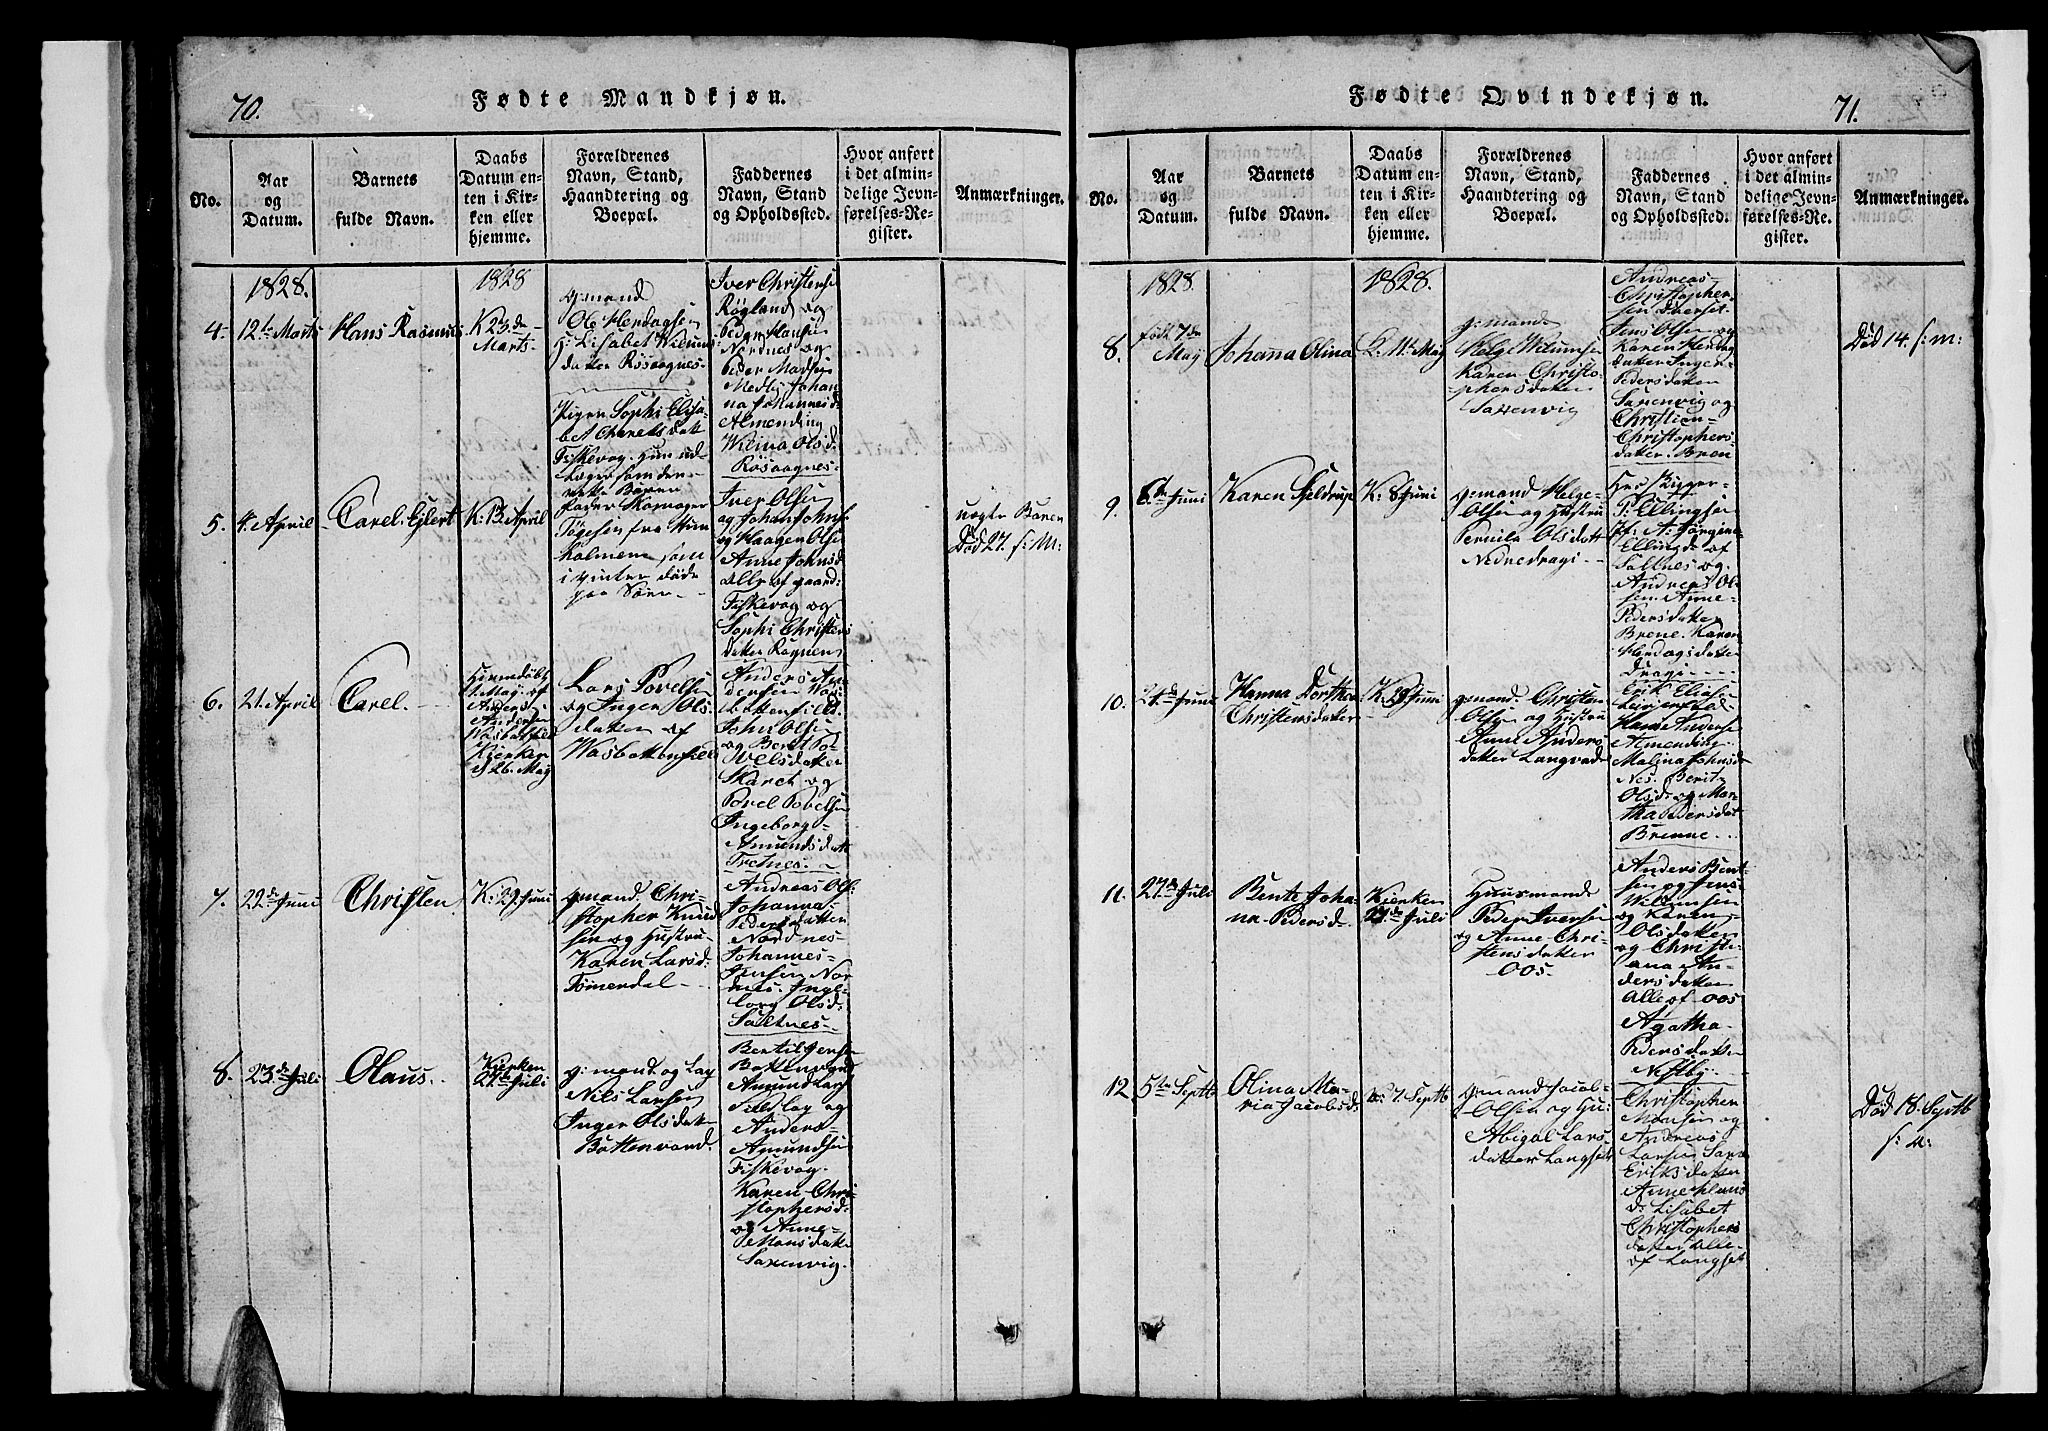 70.
Fødte Mandkjøn.
No.
Aar
og
Datum.
Barnets
fulde Navn.
Daabs
Datum en-
ten i Kir-
ken eller
hjemme.
Forældrenes
Navn, Stand,
Haandtering og
Boepæl.
Faddernes
Navn, Stand
og Opholdssted.
Hvor anført
i det almin-
delige Jevn-
førelses-Re-
gister.
Anmærkninger.
1828.
1828
4.
12te Marts
Hans Rasmus
K 23de
Marts
gmand
Ole Herdagsen
H: Lisabet Wilums
datter Rösaagnes
Iver Christens:
Røgland og
Peder Hansen
Nordnes og
Peder Madsen
Medby Johan
na Johannesd:
Almending
Olsd:
Rosaagnes
5.
4. April
Carel Ejlert
K: 13 April
Pigen Sophi Elisa
bet
Fiskevog. Hun ud
Barn
fader
Tøgesen fra
holmene som
i vinter døde
paa Søen
Iver Olsen
og Johan Johns:
og Haagen Olsen
Anne Johnsd
alle af gaard:
Fiskevog og
Sophi Christens
datter Rognen
uegte Barn
Død 27. s: M:
6.
21. April
Carel.
Hjemdøbt
1 Maj af
Anders
Andersen
Wasbotnfield
Kirken
d 26. Maj
Lars Povelsen
og Inger Ols
datter af
Wasbottenfield
Anders An
dersen Was
bottenfield.
John Olsen
og Berit Po-
velsdatter
Skaret og
Povel Povelsen
Ingeborg
Amunds datt
Tretnes.
7.
22de Juni
Christen
K: 29 Juni
gmand. Chri-
stopher Knud
sen og Hustru
Karen Larsd:
Tømerdal
Andreas Ols:
Johanna
Pedersdatter
Nordnes
Johannes
Jensen Nor
dnes. Inge-
borg Olsd:
Saltnes
8.
23de Juli
Olaus.
Kirken
27de Juli
g: mand og Lay
Nils Larsen
Inger Olsdatt
Bottenvand.
Bertil Jensen
Bottenvand
Amund Lars
og
Anders
Amundsen
Fiskevog.
Karen Chri-
stophersd:
og Anne
Monsdatt
Saxenvig.
71.
Fødte Qvindekjøn.
No.
Aar
og
Datum.
Barnets
fulde Navn.
Daabs
Datum en-
ten i Kir-
ken eller
hjemme.
Forældrenes
Navn, Stand,
Haandtering og
Boepæl.
Faddernes
Navn, Stand
og Opholdssted.
Hvor anført
i det almin-
delige Jevn-
førelses-Re-
gister.
Anmærkninger.
1828.
1828.
8.
født 7de
Maj
Johanna Olina
K. 11te Maj
g: mand
Helge Wilumsen
Karen Christo-
phersdatter
Saxenvig
Andreas
Christopher
sen Øverset
Jens Olsen og
Karen Herdag
datter Inger
Pedersdatter
Saxenvig og
Christian
Christophers
datter. Bren
Død 14. s: m:
9.
6te Juni
Karen Sjeldrup
K: 8 Juni
g: mand Helge
Olsen og Hustru
Pernila Olsdatt
Nedredragi
Hr:
P: Ellingsen
Jf: A: Jørgine
Ellingd: af
Saltnes og
Andreas Ol
sen. Anne
Pedersdatter
Brene. Karen
Herdagsdatter
Dragi
10.
24de Juni
Hanna Dorthea
Christensdatter
K. 29 Juni
gmand. Christen
Olsen og Hustru
Anne Anders
datter Langvad
Erik Elias
Hans Anders
Almending
Malina Johnsd
Nes. Berit
Olsd: og Mar
tha Pedersdat
Brenne
11.
27de Juli
Bente Joha-
na Pedersd:
Kirken
27de Juli
Huusmand
Peder Iversen
og Anne Chri-
stensdatter
OOS.
Anders Bent
sen og Jens
Wilumsen
og Karen
Olsdatter
og Christi-
ana An
dersdatter
alle af OOS
Agatha
Pedersdatter
Nestby.
12
5te Septb
Olina Ma-
ria Jacobsd:
K: 7. Septb
gmand Jacob
Olsen og Hu:
Abigal Lars
datter Langset
Christopher
Monsen og
Andreas
Larsen Sara
Eriksdatter
Anne Hans
d: Lisabet
Christophers
datter alle
af Langset
Død 18. Septb
s: M: